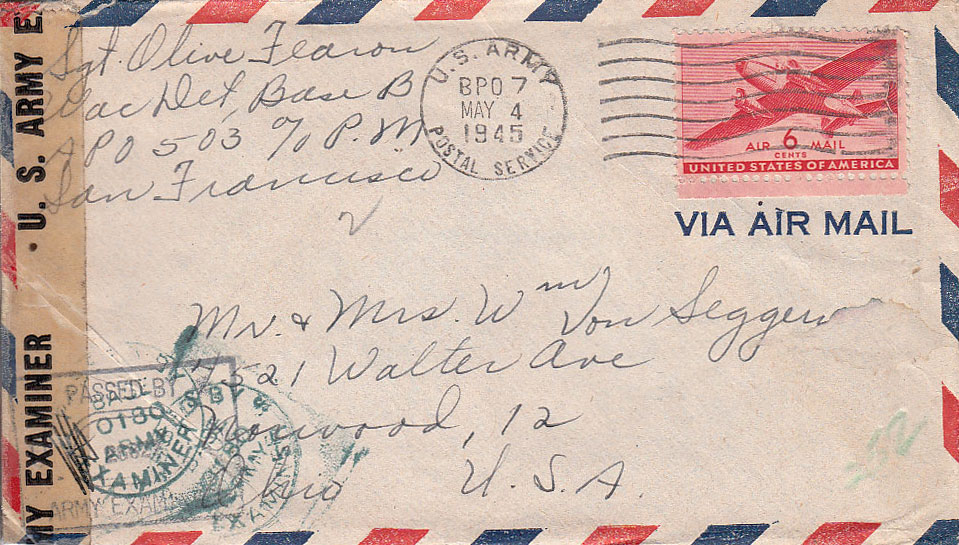 Sgt. Olive Fearon
Wac Det, Base B
APO 503 c/o P.M
San Francisco
U.S. ARMY
BPO 7
MAY 4
1945
POSTAL SERVICE
AIR 6 MAIL
CENTS
UNITED STATES OF AMERICA
VIA AIR MAIL
Mr. & Mrs. Wm Von Seggern
Walter Ave
Norwood, 12
Ohio U.S.A.
MY EXAMINER · U. S. ARMY E
PASSED BY
ARMY
EXAMINER
ARMY EXAM